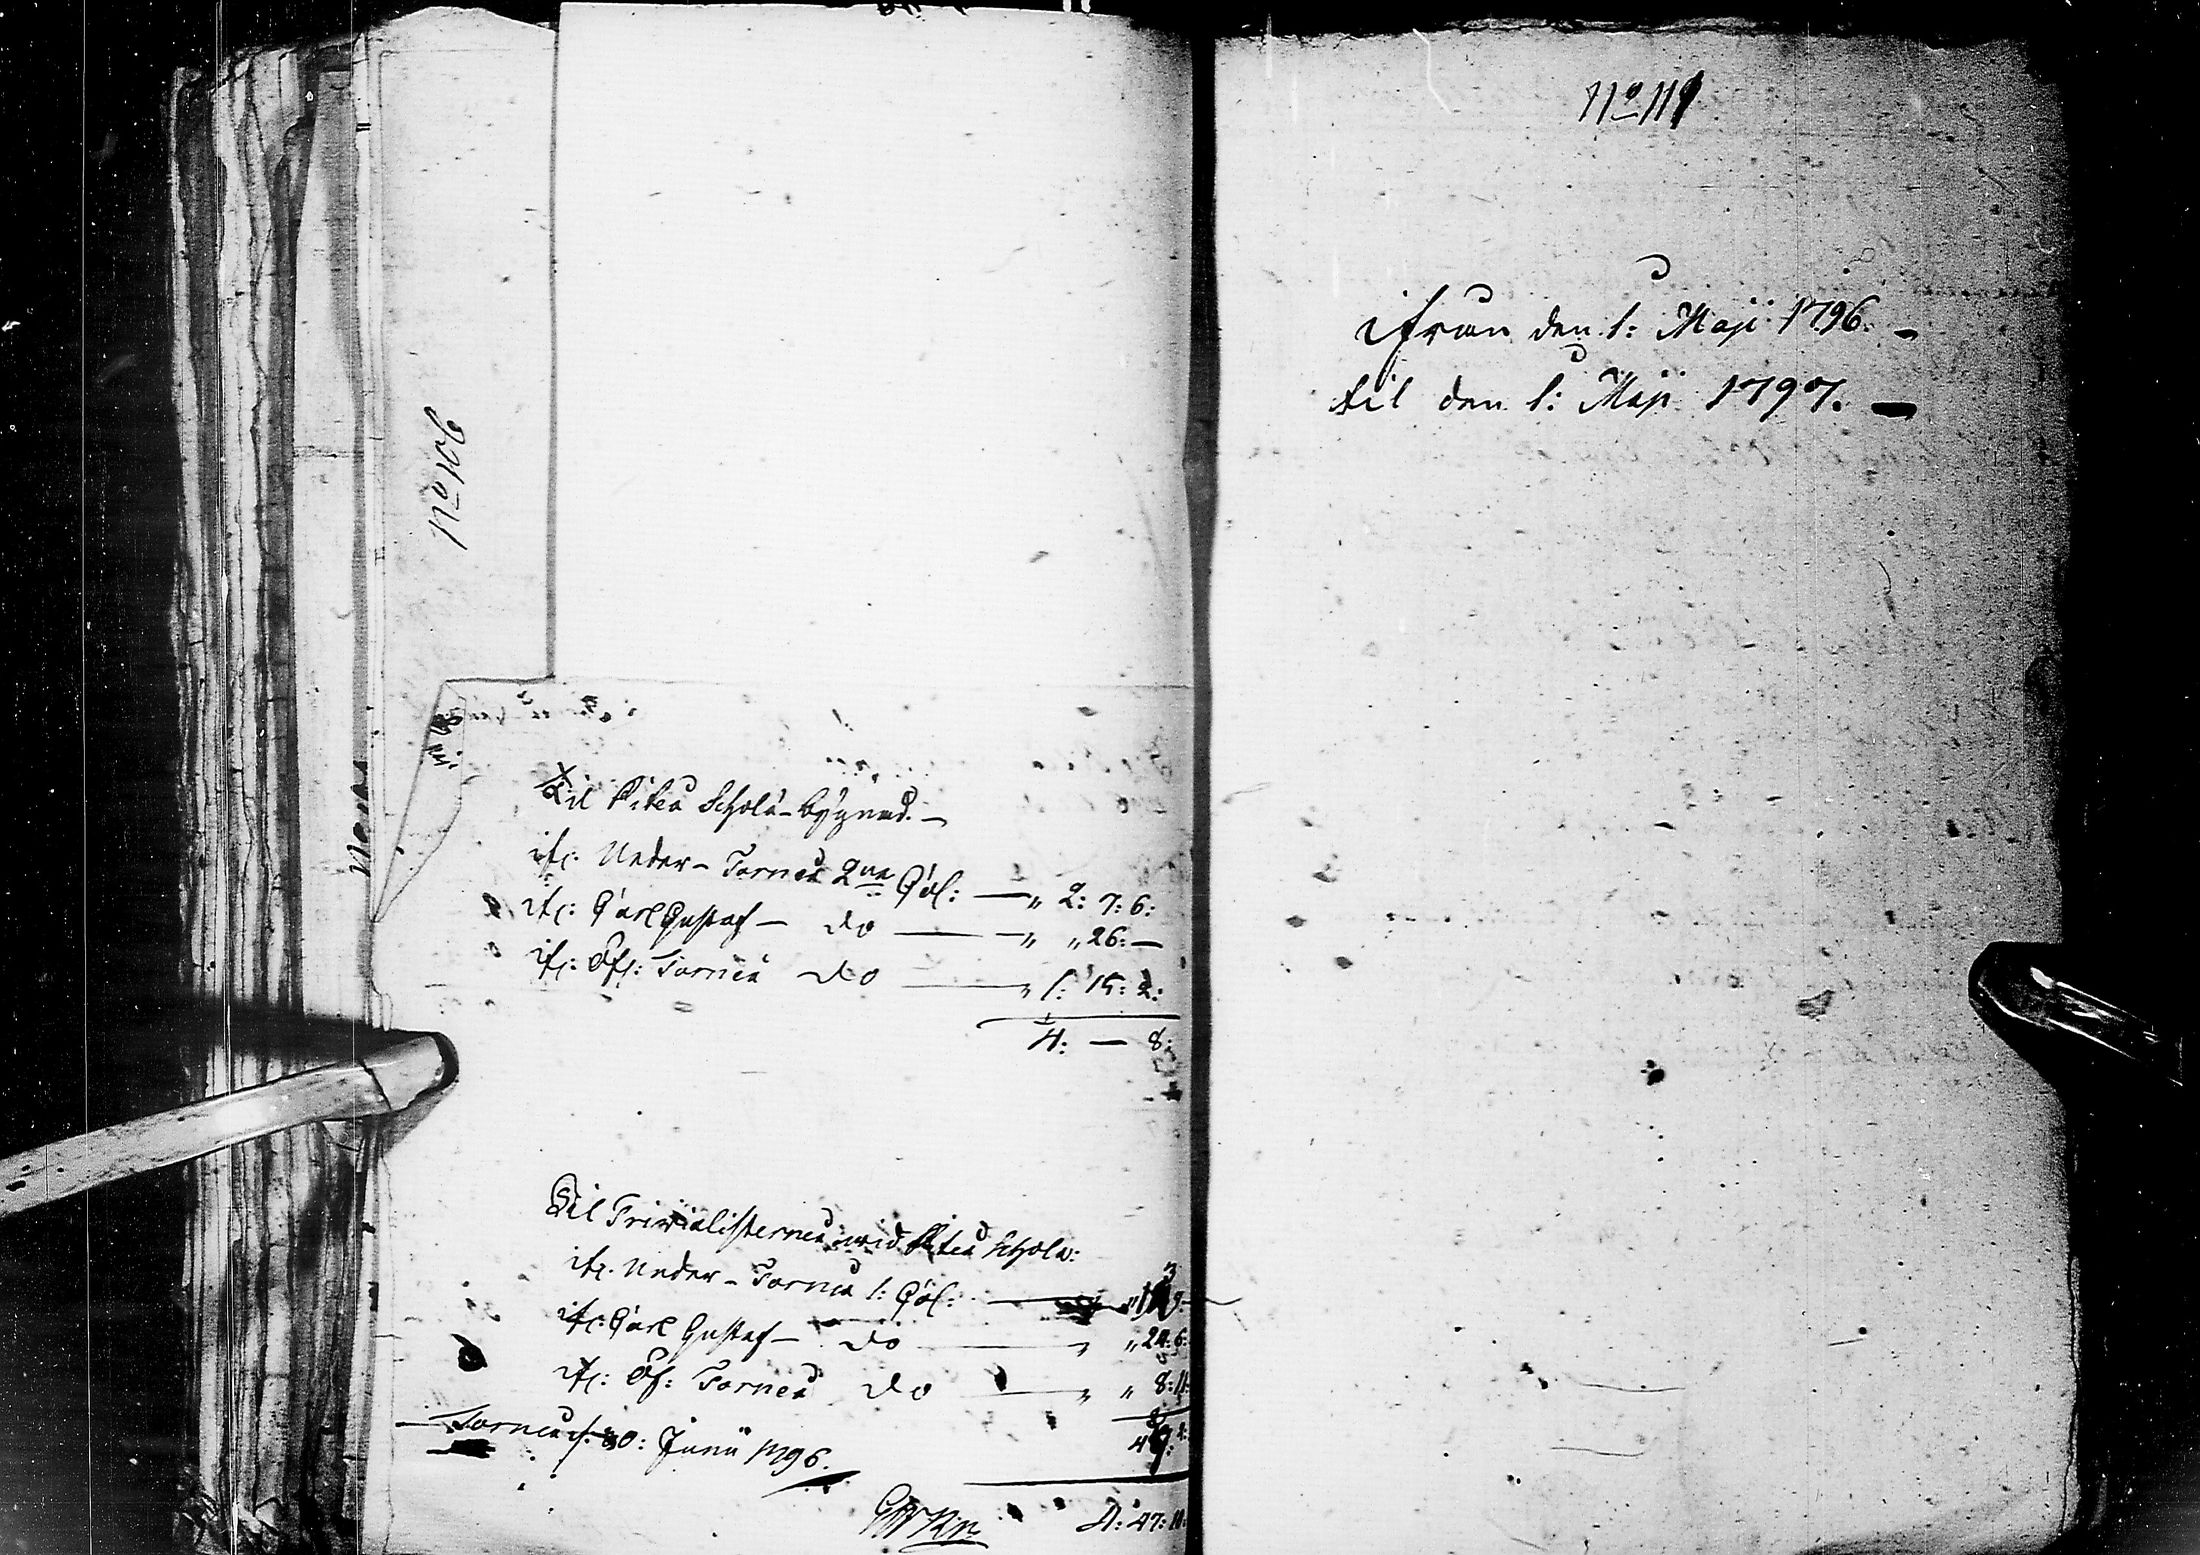 No 106
Til Piteå Schole-bygnad. —
ifr. Neder-Torneå 2ne Göl: — " 2: 7: 6:
ifr: Carl Gustaf — do — " " 26: —
ifr: Öfr: Torneå do — " 1: 15: 2:
4: — 8:
Til Trivialisterne wid Piteå Schola:
ifr. Neder-Torneå 1: Göl: —
ifr: Carl Gustaf — do — " " 24: 6:
ifr: Öf: Torneå do — " " 8: 11:
Torneå d. 30: Junii 1796.
4: 47: 11:
No 111
ifrån den 1: Maji 1796. —
til den 1: Maji 1797. —